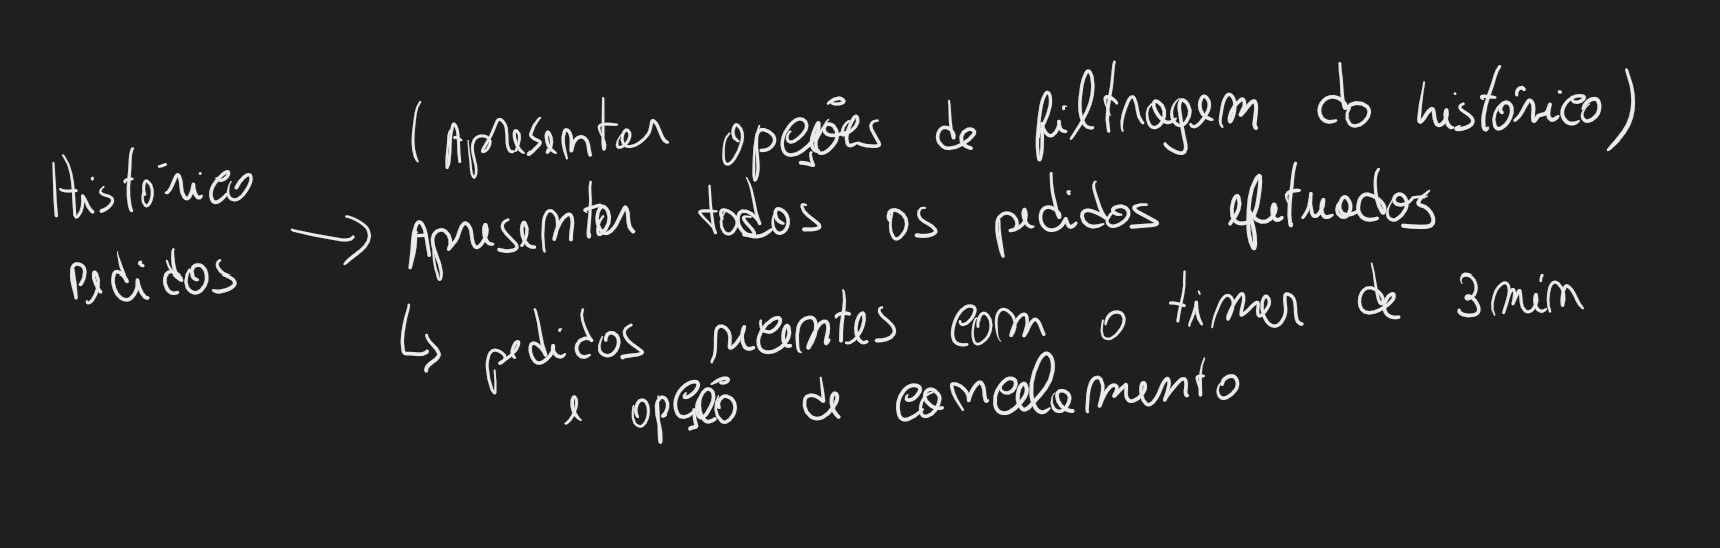 Histórico
pedidos
(Apresentar opções de filtragem do histórico)
→ Apresentar todos os pedidos efetuados
↳ pedidos recentes com o timer de 3 min
e opção de cancelamento